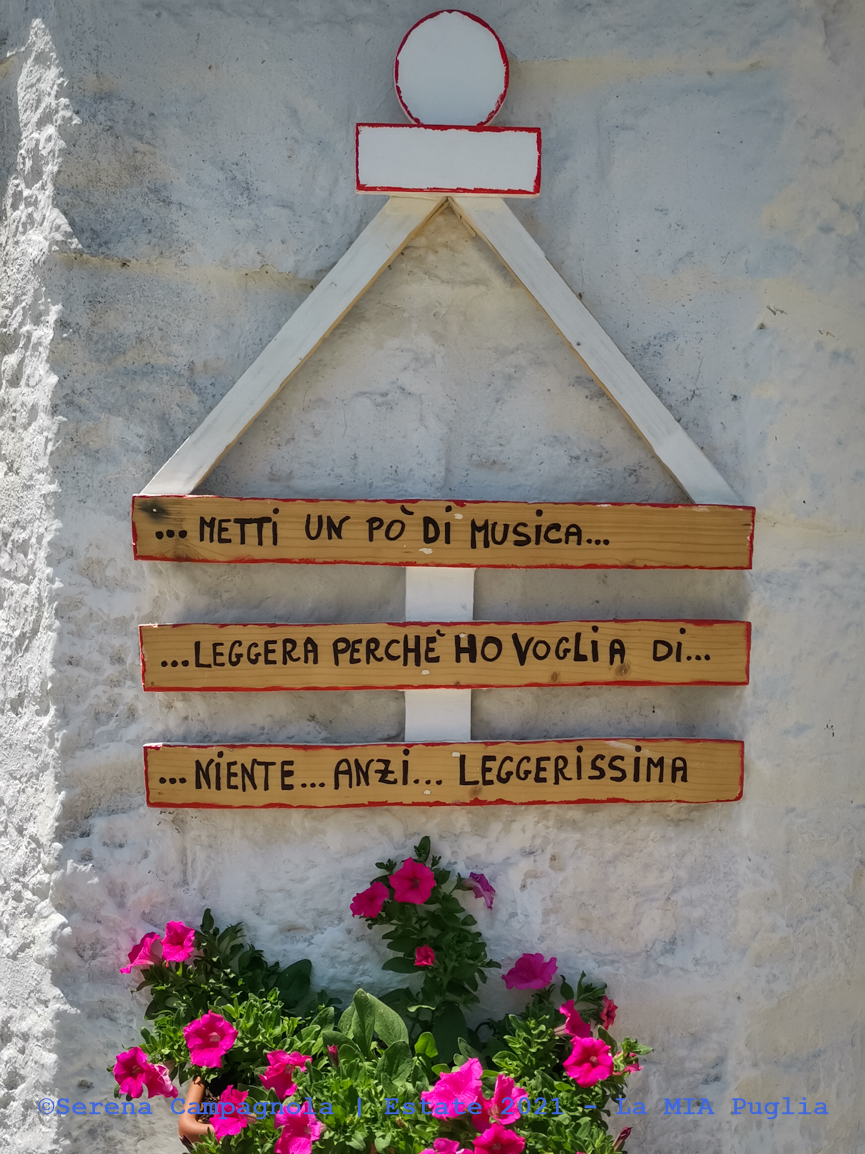 ... METTi UN PÒ Di MUSiCA...
...LEGGERA PERCHÈ HO VOGLiA Di...
...NiENTE...ANZi... LEGGERiSSiMA
©Serena Campagnola | Estate 2021 - La MIA Puglia